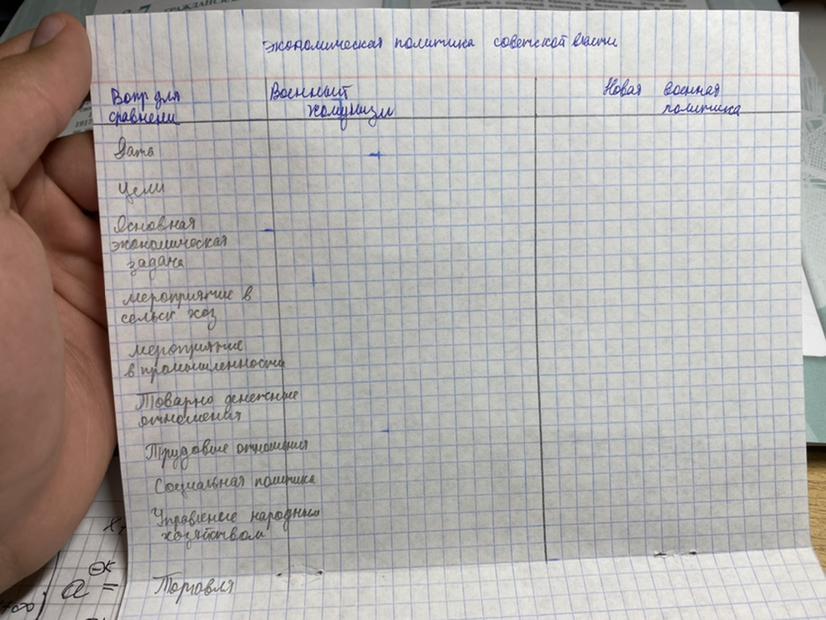 экономическая политика советской власти
Вопр для
сравнени
Военный
комунизм
Новая военная
политика
Дата
Цели
Основная
экономическая
задача
мероприятие в
сельск хоз
мероприятие
в промышленности
Товарно денежные
отношения
Трудовые отношения
Социальная политика
Управление народным
хозяйством
Торговля
a =